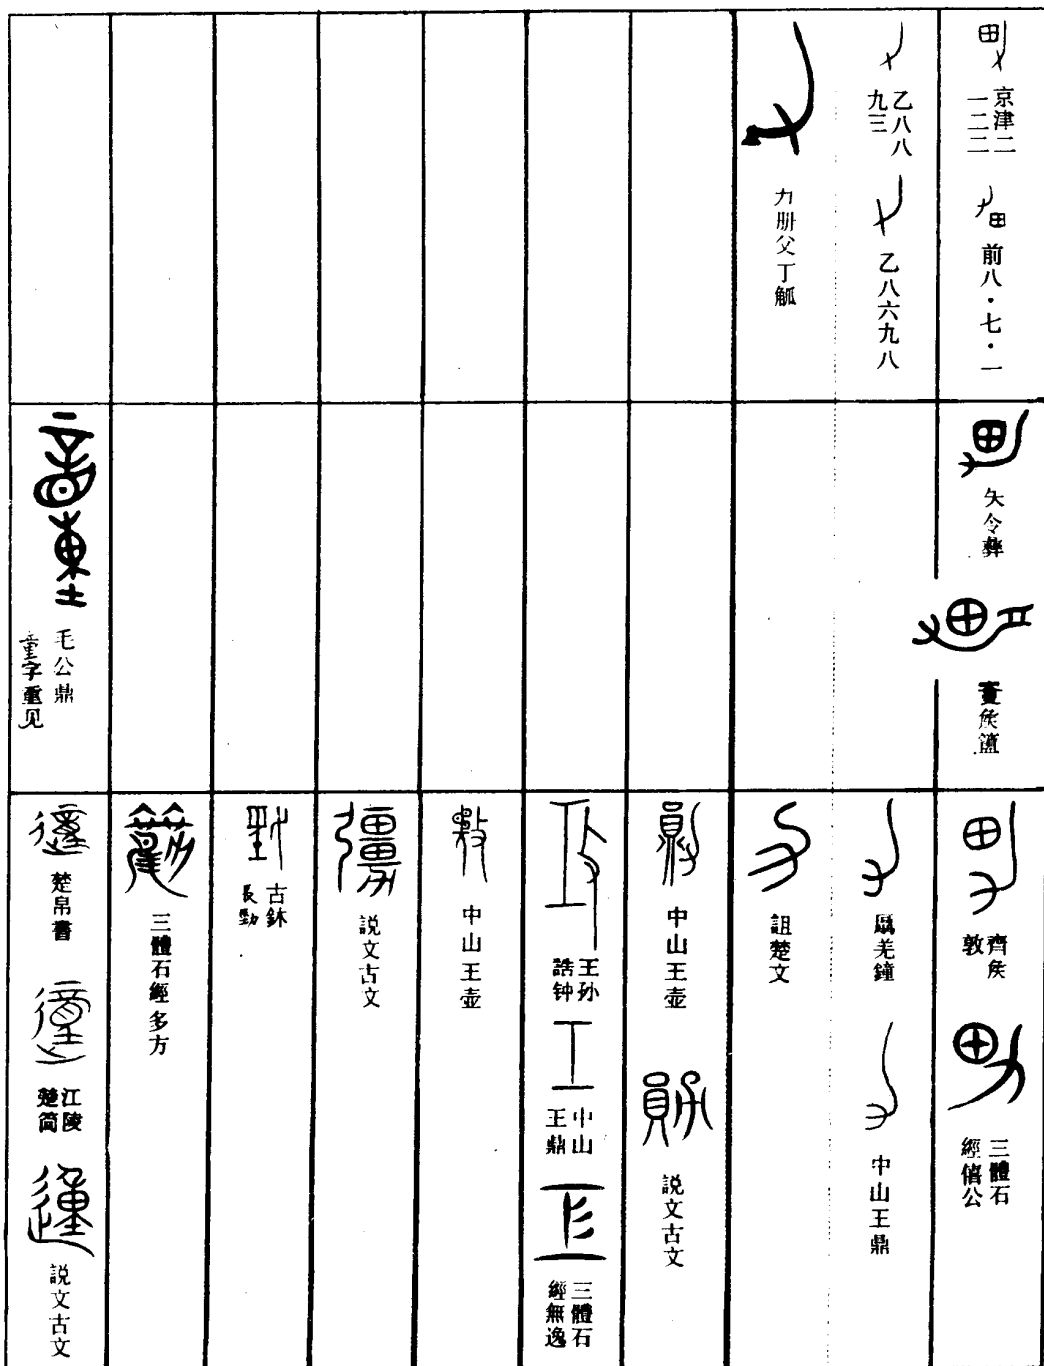 京津二
一二二
前八·七·一
乙八八
九三
乙八六九八
力册父丁觚
夨令彝
𫲨侯簠
毛公鼎
童字重见
齊侯
敦
三體石
經僖公
屭羌鐘
中山王鼎
詛楚文
中山王壺
説文古文
王孙
誥钟
中山
王鼎
三體石
經無逸
中山王壺
説文古文
古鉢
長勁
三體石經多方
楚帛書
江陵
楚简
説文古文